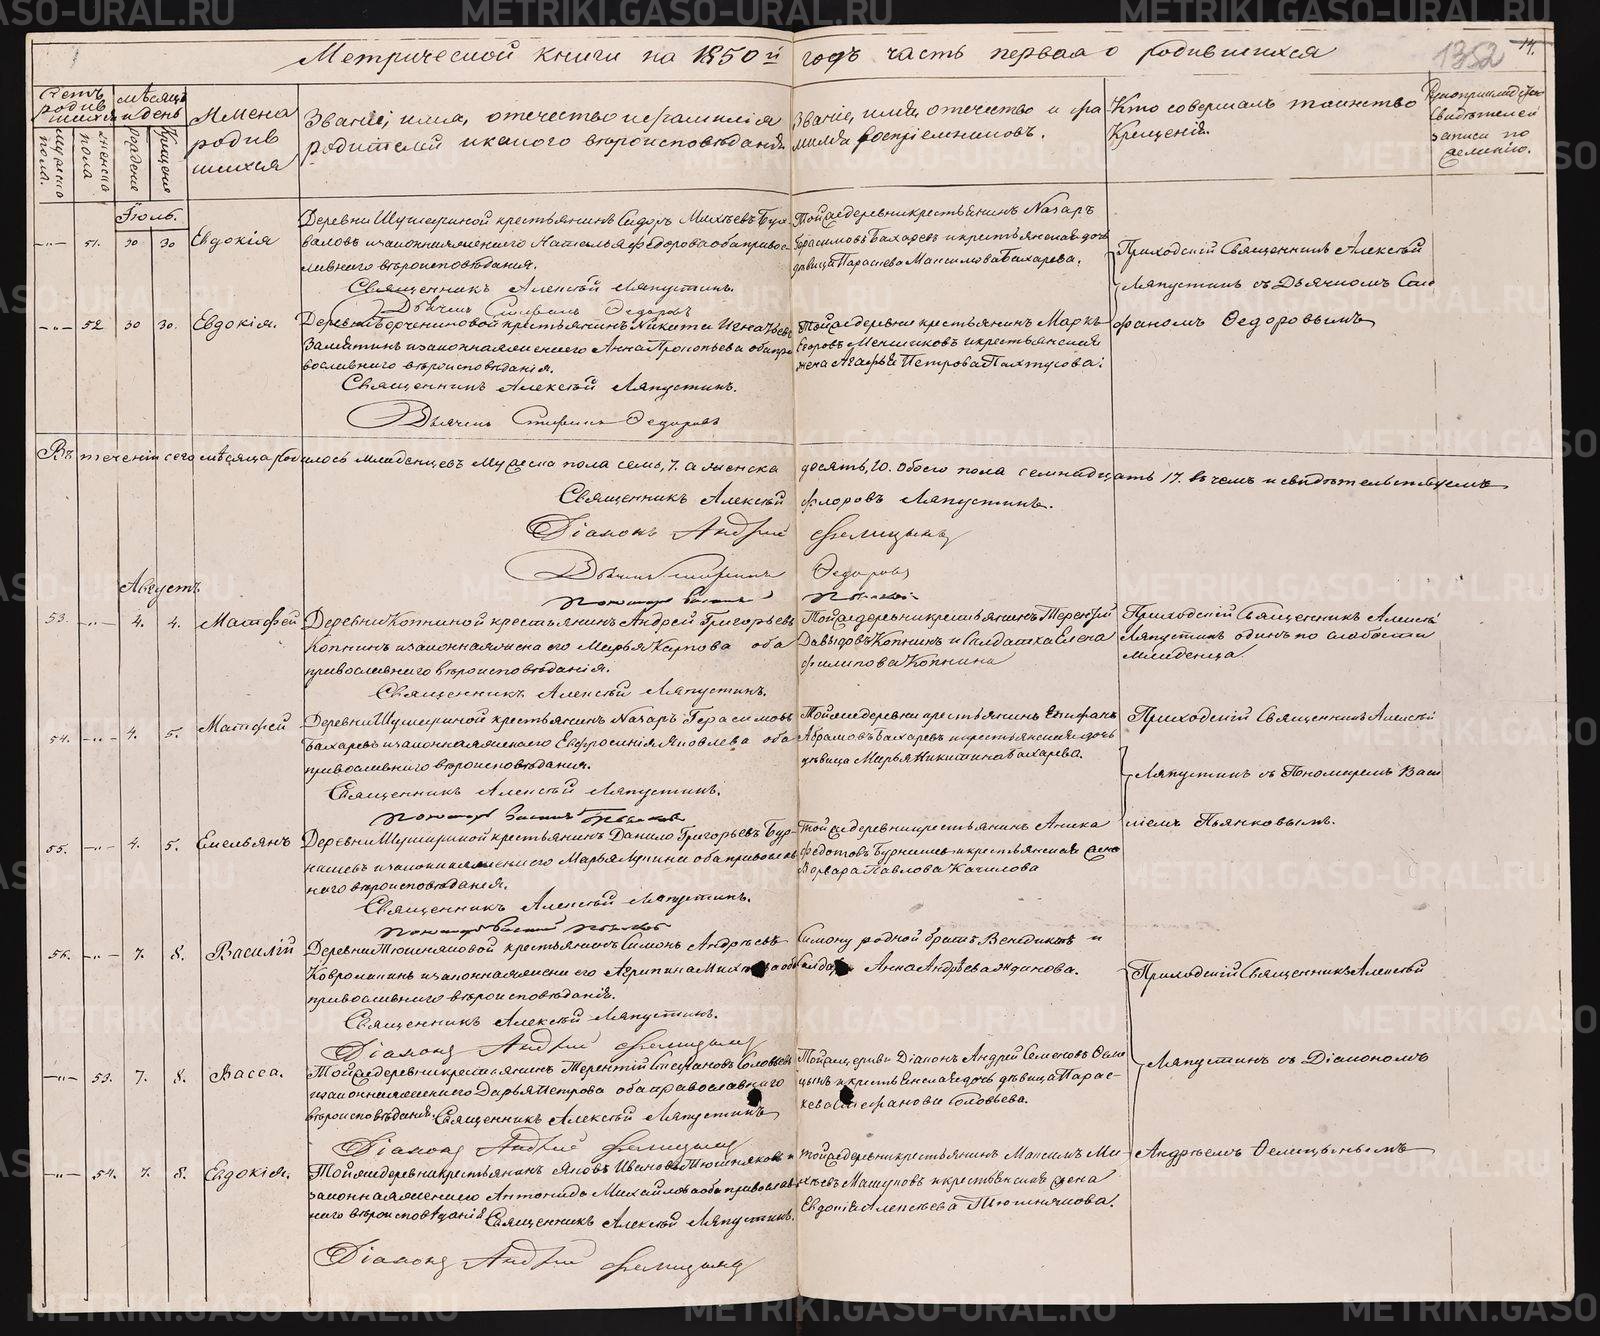 Метрической книги на 1850й годъ часть первая о родившихся
1352
14.
Счетъ родившихся
мѣсяцъ и день
Имена родившихся
Званіе, имя, отечество и фамилія родителей и какого вѣроисповѣданія.
Званіе, имя, отечество и фамилія воспріемниковъ.
Кто совершалъ таинство Крещенія.
Рукоприкладство свидѣтелей записи по желанію.
мужеска пола.
женска пола
рожденія
крещенія
Іюль.
51. 30 30 Евдокія
Деревни Шушариной крестьянинъ Сидоръ
и законная жена его Наталья Федорова оба православнаго вѣроисповѣданія.
Священникъ Алексѣй Ляпустинъ.
Дьячекъ Стефанъ Федоровъ
Тойже деревни крестьянинъ Назаръ
Герасимовъ Бахаревъ и крестьянская дочь
дѣвица Параскева Максимова Бахарева.
Приходскій Священникъ Алексѣй
Ляпустинъ съ Дьячкомъ Сте
фаномъ Федоровымъ
52 30 30. Евдокія.
крестьянинъ Никита Игнатьевъ
Замятинъ и законная жена его Анна Прокопьева оба пра
вославнаго вѣроисповѣданія.
Священникъ Алексѣй Ляпустинъ.
Дьячекъ Стефанъ Федоровъ
Тойже деревни крестьянинъ Маркъ
Егоровъ Меншиковъ и крестьянская
жена Агафья Петрова Пахтусова.
Въ теченіи сего мѣсяца родилось младенцевъ мужеска пола семь, 7. а женска десять, 10. обоего пола семнадцать 17. въ чемъ и свидѣтельствуемъ
Священникъ Алексѣй Флоровъ Ляпустинъ.
Діаконъ Андрей Фелицынъ
Дьячекъ Стефанъ Федоровъ
Августъ
53. 4. 4. Матфей
Деревни Копниной крестьянинъ Андрей Григорьевъ
Копнинъ и законная жена его Марья Карпова оба
православнаго вѣроисповѣданія.
Священникъ Алексѣй Ляпустинъ.
Тойже деревни крестьянинъ Терентій
Давыдовъ Копнинъ и Солдатка Елена
Филипова Копнина
Приходскій Священникъ Алексѣй
Ляпустинъ одинъ по слабости
младенца.
54. 4. 5. Матфей
Деревни Шушариной крестьянинъ Назаръ Герасимовъ
Бахаревъ и законная жена его Евфросинія Яковлева оба
православнаго вѣроисповѣданія.
Священникъ Алексѣй Ляпустинъ.
Тойже деревни крестьянинъ Епифанъ
Абрамовъ Бахаревъ и крестьянская дочь
дѣвица Марья Никитина Бахарева.
Приходскій Священникъ Алексѣй
Ляпустинъ съ Пономаремъ Васи
ліемъ Пьянковымъ.
55. 4. 5. Емельянъ
Деревни Шушариной крестьянинъ Данило Григорьевъ Бур-
нашевъ и законная жена его Марья Лукина оба православ
наго вѣроисповѣданія.
Священникъ Алексѣй Ляпустинъ.
Тойже деревни крестьянинъ Аника
Федотовъ Бурнашевъ и крестьянская жена
Варвара Павлова Качилова
56. 7. 8. Василій
Деревни Тюшняковой крестьянинъ Симонъ Андреевъ
и законная жена его Агрипина
православнаго вѣроисповѣданія.
Священникъ Алексѣй Ляпустинъ.
Діаконъ Андрей Фелицынъ
Симону родной братъ Венедиктъ и
Анна Андреева Жданова.
Приходскій Священникъ Алексѣй
Ляпустинъ съ Діакономъ
Андреемъ Фелицынымъ
53. 7. 8. Васса.
Тойже деревни крестьянинъ Терентій Степановъ Соловьевъ
и законная жена его Дарья Петрова оба православнаго
вѣроисповѣданія. Священникъ Алексѣй Ляпустинъ
Діаконъ Андрей Фелицынъ
Діаконъ Андрей Семеновъ Фели
цынъ и крестьянская дочь дѣвица Парас-
кева Стефанова Соловьева.
54. 7. 8. Евдокія.
Тойже деревни крестьянинъ Яковъ Ивановъ Тюшняковъ и
законная жена его Антонида Михайлова оба православ
наго вѣроисповѣданія Священникъ Алексѣй Ляпустинъ.
Діаконъ Андрей Фелицынъ
Тойже деревни крестьянинъ Максимъ Ми
хѣевъ Машуковъ и крестьянская жена
Евдокія Алексѣева Тюшнякова.
METRIKI.GASO-URAL.RU